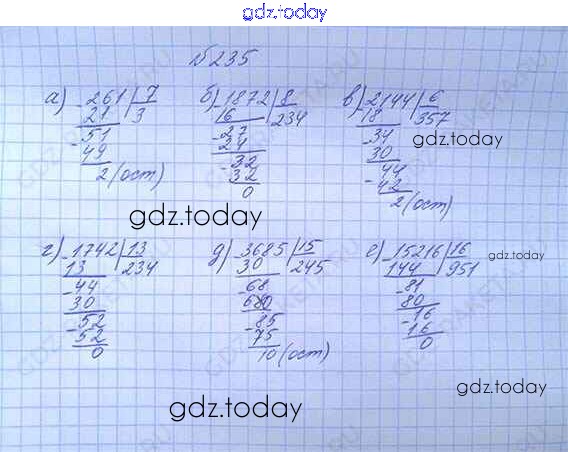 gdz.today
№235
а) 261 | 7 б) 1872 | 8 в) 2144 | 6
- 21 3 - 16 234 - 18 357
- 51 - 27 - 34
49 24 30
2 (ост) - 32 - 44
32 42
0 2 (ост)
gdz.today
gdz.today
г) 1742 | 13 д) 3685 | 15 е) 15216 | 16
- 13 234 - 30 245 - 144 951
- 44 68 - 81
30 60 80
- 52 - 85 - 16
52 75 16
0 10 (ост) 0
gdz.today
gdz.today
gdz.today